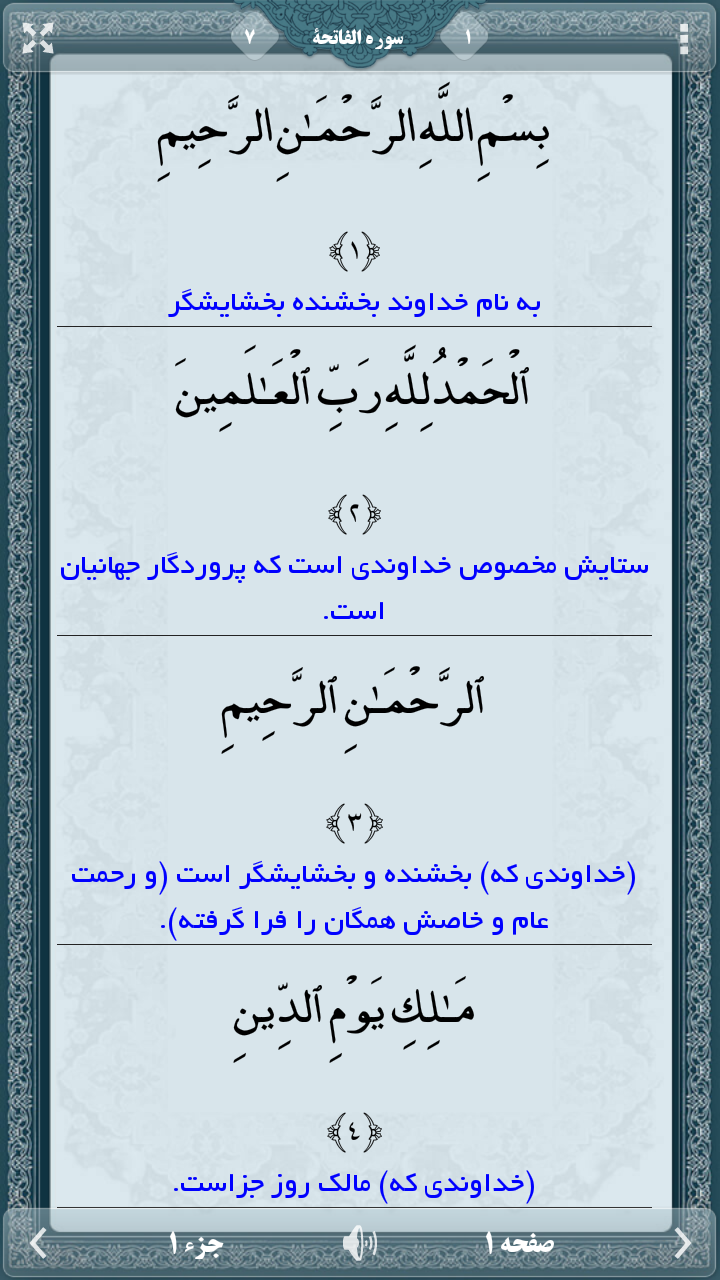 ١ سوره الفاتحة ٧
بِسْمِ اللَّهِ الرَّحْمَـٰنِ الرَّحِيمِ
﴿١﴾
به نام خداوند بخشنده بخشایشگر
ٱلْحَمْدُ لِلَّهِ رَبِّ ٱلْعَـٰلَمِينَ
﴿٢﴾
ستایش مخصوص خداوندی است که پروردگار جهانیان
است.
ٱلرَّحْمَـٰنِ ٱلرَّحِيمِ
﴿٣﴾
(خداوندی که) بخشنده و بخشایشگر است (و رحمت
عام و خاصش همگان را فرا گرفته).
مَـٰلِكِ يَوْمِ ٱلدِّينِ
﴿٤﴾
(خداوندی که) مالک روز جزاست.
صفحه ١ جزء ١